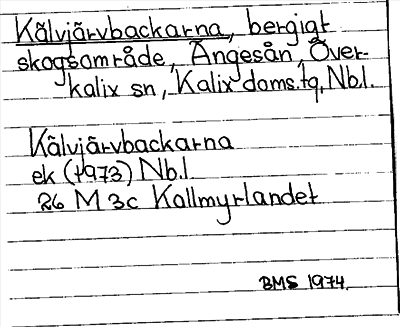 Kälvjärvbackarna, bergigt
skogsområde, Ängesån, Över-
kalix sn, Kalix doms.tg, Nb.l.
Kälvjärvbackarna
ek (1973) Nb.l
26 M 3c Kallmyrlandet
BMS 1974.